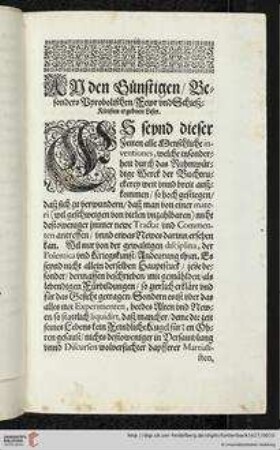 AN den Günstigen/ Be-
sonders Pyrobolischen/ Fewr vnd Schieß-
Künsten ergebnen Leser.
ES seynd dieser
Zeiten alle Menschliche in-
ventiones, welche insonder-
heit durch das Ruhmwür-
dige Werck der Buchtru-
ckerey weit vnnd breit auß-
kommen/ so hoch gestiegen/
daß sich zu verwundern/ daß man von einer mate-
ri (wil geschweigen von vielen vnzahlbaren) nicht
destoweniger immer newe Tractat vnd Commen-
ten antreffen/ vnnd etwas Newes darinn ersehen
kan. Wil mir von der gewaltigen disciplina, der
Polemica vnd Kriegskunst/ Andeutung thun. Es
seynd nicht allein derselben Hauptstück/ jede be-
sonder/ dermassen beschrieben/ mit gemählden als
lebendigen Fürbildungen/ so zierlich erklärt vnd
für das Gesicht getragen. Sondern auch vber das
alles mit Experimenten, beedes Alten vnd New-
en so stattlich liquidirt, daß mancher/ deme die zeit
seines Lebens kein Feindliche Kugel für den Oh-
ren gesaust/ nichts destoweniger in Versamblung
vnnd Discursen wolversuchter dapfferer Martiali-
sten,